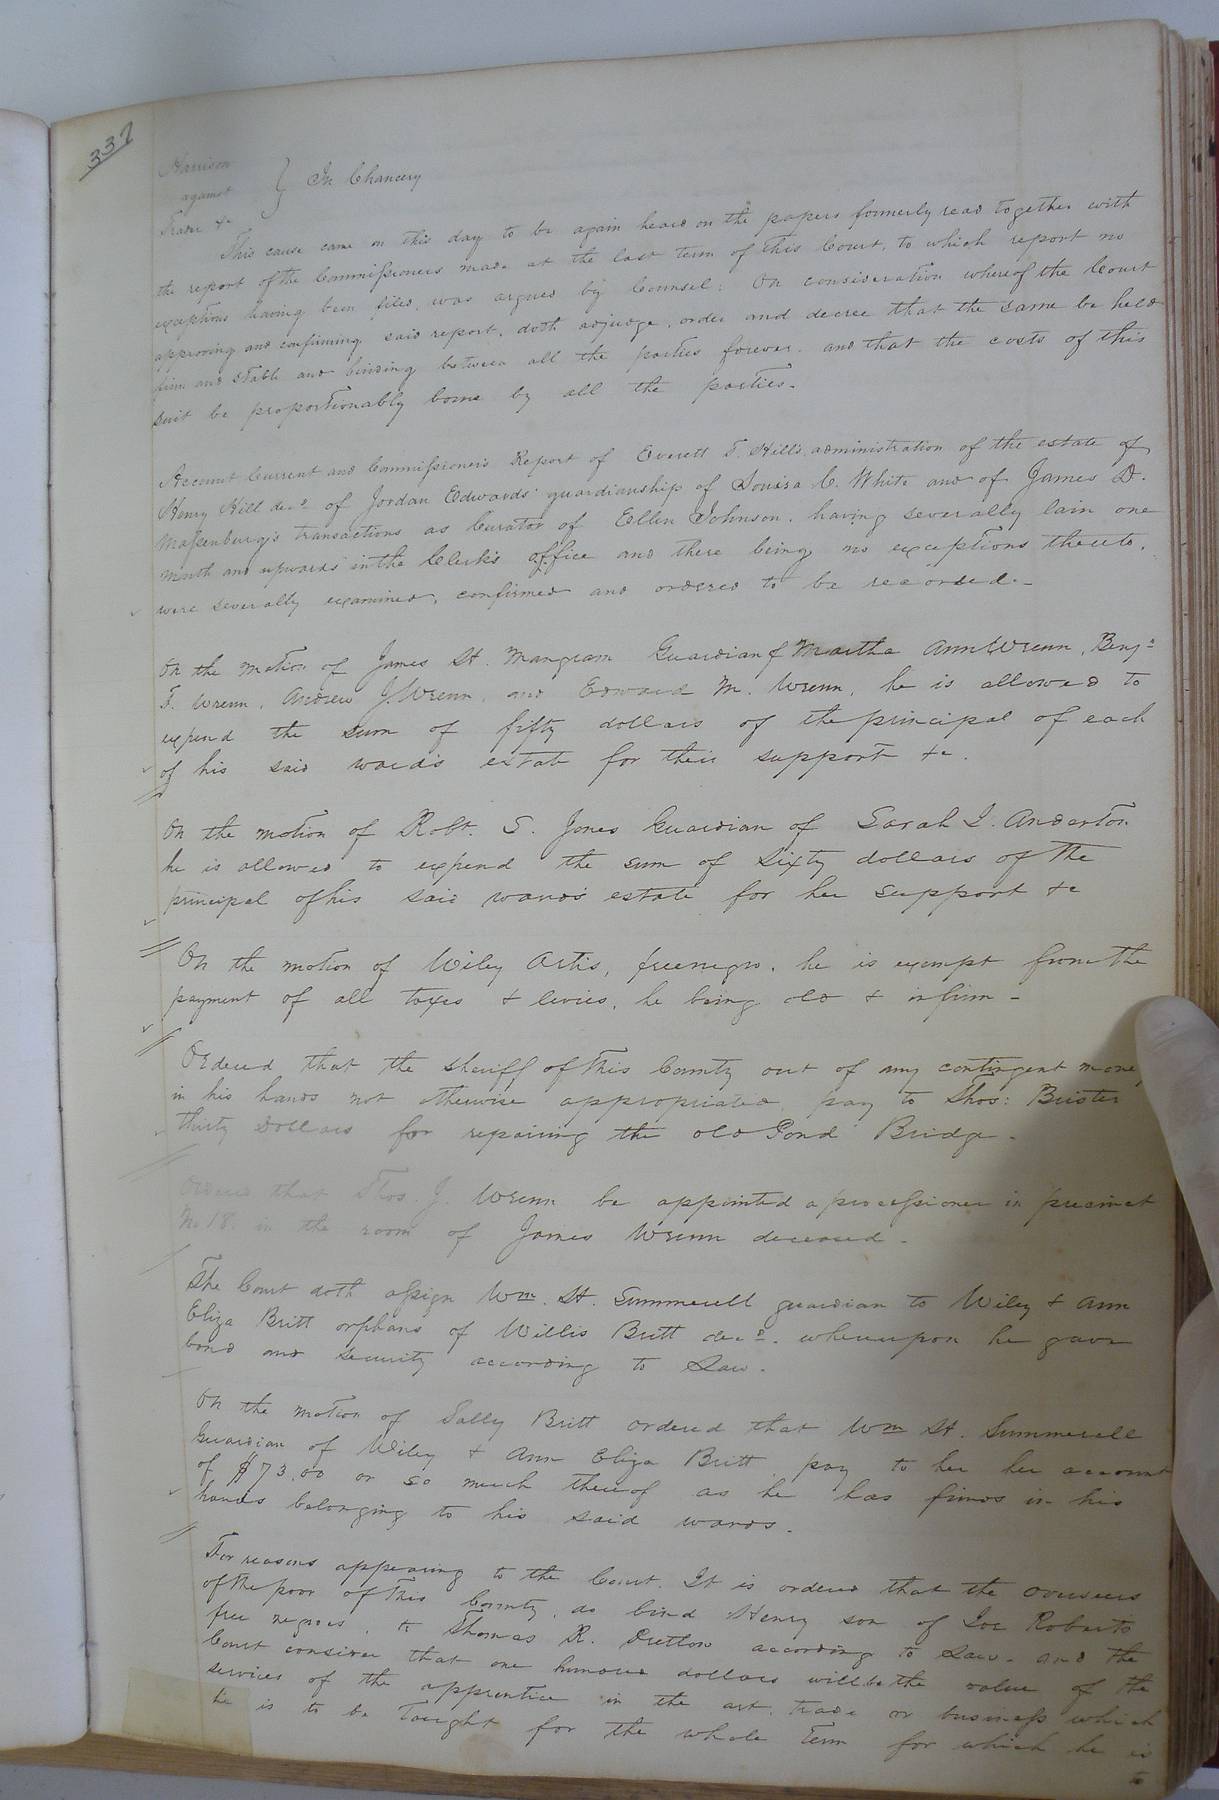 337
Harrison
against } In Chancery
Trader &c
This cause came on this day to be again heard on the papers formerly read together with
the report of the Commissioners made at the last term of this Court, to which report no
exceptions having been filed, was argued by Counsel: On consideration whereof the Court
approving and confirming said report, doth adjudge, order and decree that the same be held
firm and stable and binding between all the parties forever. and that the costs of this
suit be proportionably borne by all the parties.
Account Current and Commissioner's Report of Everett T. Hill's administration of the estate of
Henry Hill decd of Jordan Edwards' guardianship of Louisa C. White and of James D.
Massenburg's transactions as Curator of Ellen Johnson. having severally lain one
month and upwards in the Clerk's office and there being no exceptions thereto.
were severally examined, confirmed and ordered to be recorded.
On the motion of James H. Mangram Guardian of Martha Ann Wrenn, Benjn
F. Wrenn, Andrew J. Wrenn, and Edward M. Wrenn, he is allowed to
expend the sum of fifty dollars of the principal of each
of his said wards estate for their support &c.
On the motion of Robt. S. Jones Guardian of Sarah I. Anderton
he is allowed to expend the sum of sixty dollars of the
principal of his said wards estate for her support &c
On the motion of Wiley Artis, free negro. he is exempt from the
payment of all taxes & levies, he being old & infirm -
Ordered that the sheriff of this County out of any contingent money
in his hands not otherwise appropriated, pay to Thos: Brister
thirty Dollars for repairing the old Pond Bridge.
Ordered that Thos. J. Wrenn be appointed a processioner in precinct
No 18. in the room of James Wrenn deceased.
The Court doth assign Wm. H. Summerell guardian to Wiley & Ann
Eliza Britt orphans of Willis Britt decd. whereupon he gave
bond and security according to Law.
On the motion of Sally Britt ordered that Wm H. Summerell
Guardian of Wiley & Ann Eliza Britt pay to her her account
of $73.00 or so much thereof as he has funds in his
hands belonging to his said wards.
For reasons appearing to the Court. It is ordered that the overseers
of the poor of this County, do bind Henry son of Joe Roberts
free negroes, to Thomas R. Pretlow according to Law. and the
Court consider that one hundred dollars will be the value of the
services of the apprentice in the art, trade or business which
he is to be taught for the whole Term for which he is
to